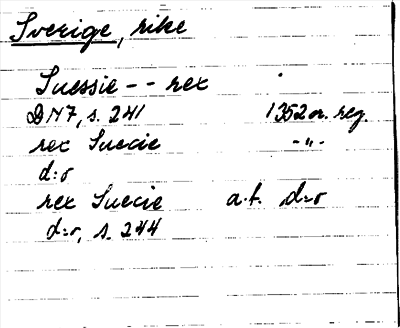 Sverige, rike
Suessie -- rex
DN7, s. 241 1352 or. reg.
rex Suecie -"-
d:o
rex Suecie a.t. d:o
d:o, s. 244